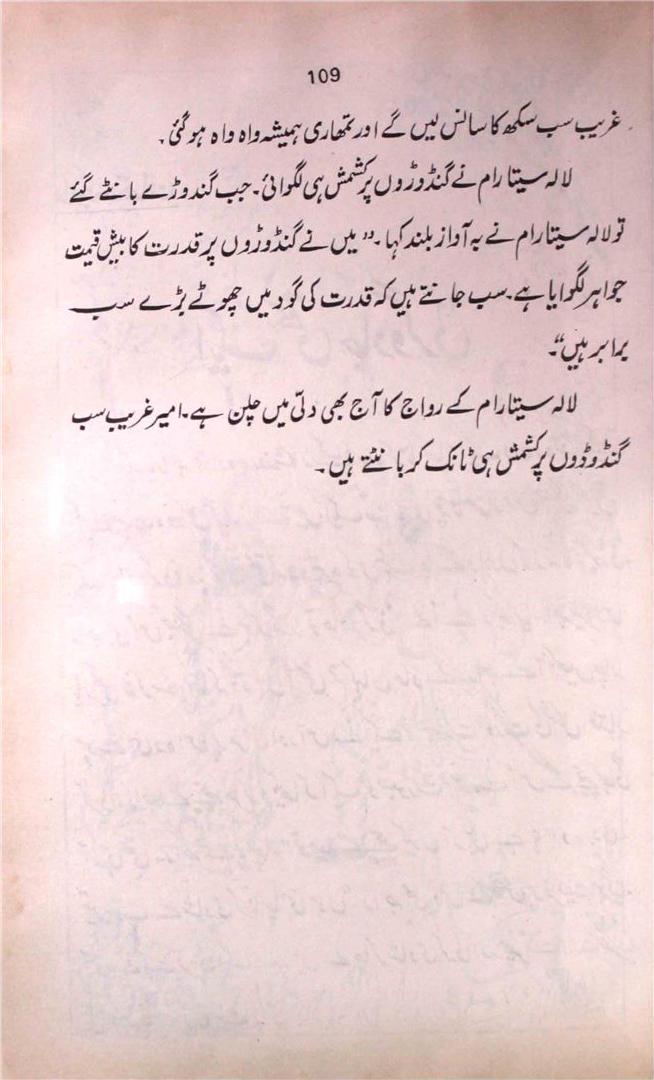 109
غریب سب سکھ کا سانس لیں گے اور تمھاری ہمیشہ واہ واہ ہو گئی۔
لالہ سیتا رام نے گنڈوڑوں پر کشمش ہی لگوائی۔ جب گندوڑے بانٹے گئے
تو لالہ سیتا رام نے بہ آواز بلند کہا۔ ”میں نے گنڈوڑوں پر قدرت کا بیش قیمت
جواہر لگوایا ہے۔ سب جانتے ہیں کہ قدرت کی گود میں چھوٹے بڑے سب
برابر ہیں“۔
لالہ سیتا رام کے رواج کا آج بھی دلّی میں چلن ہے۔ امیر غریب سب
گنڈوڈوں پر کشمش ہی ٹانک کر بانٹتے ہیں۔